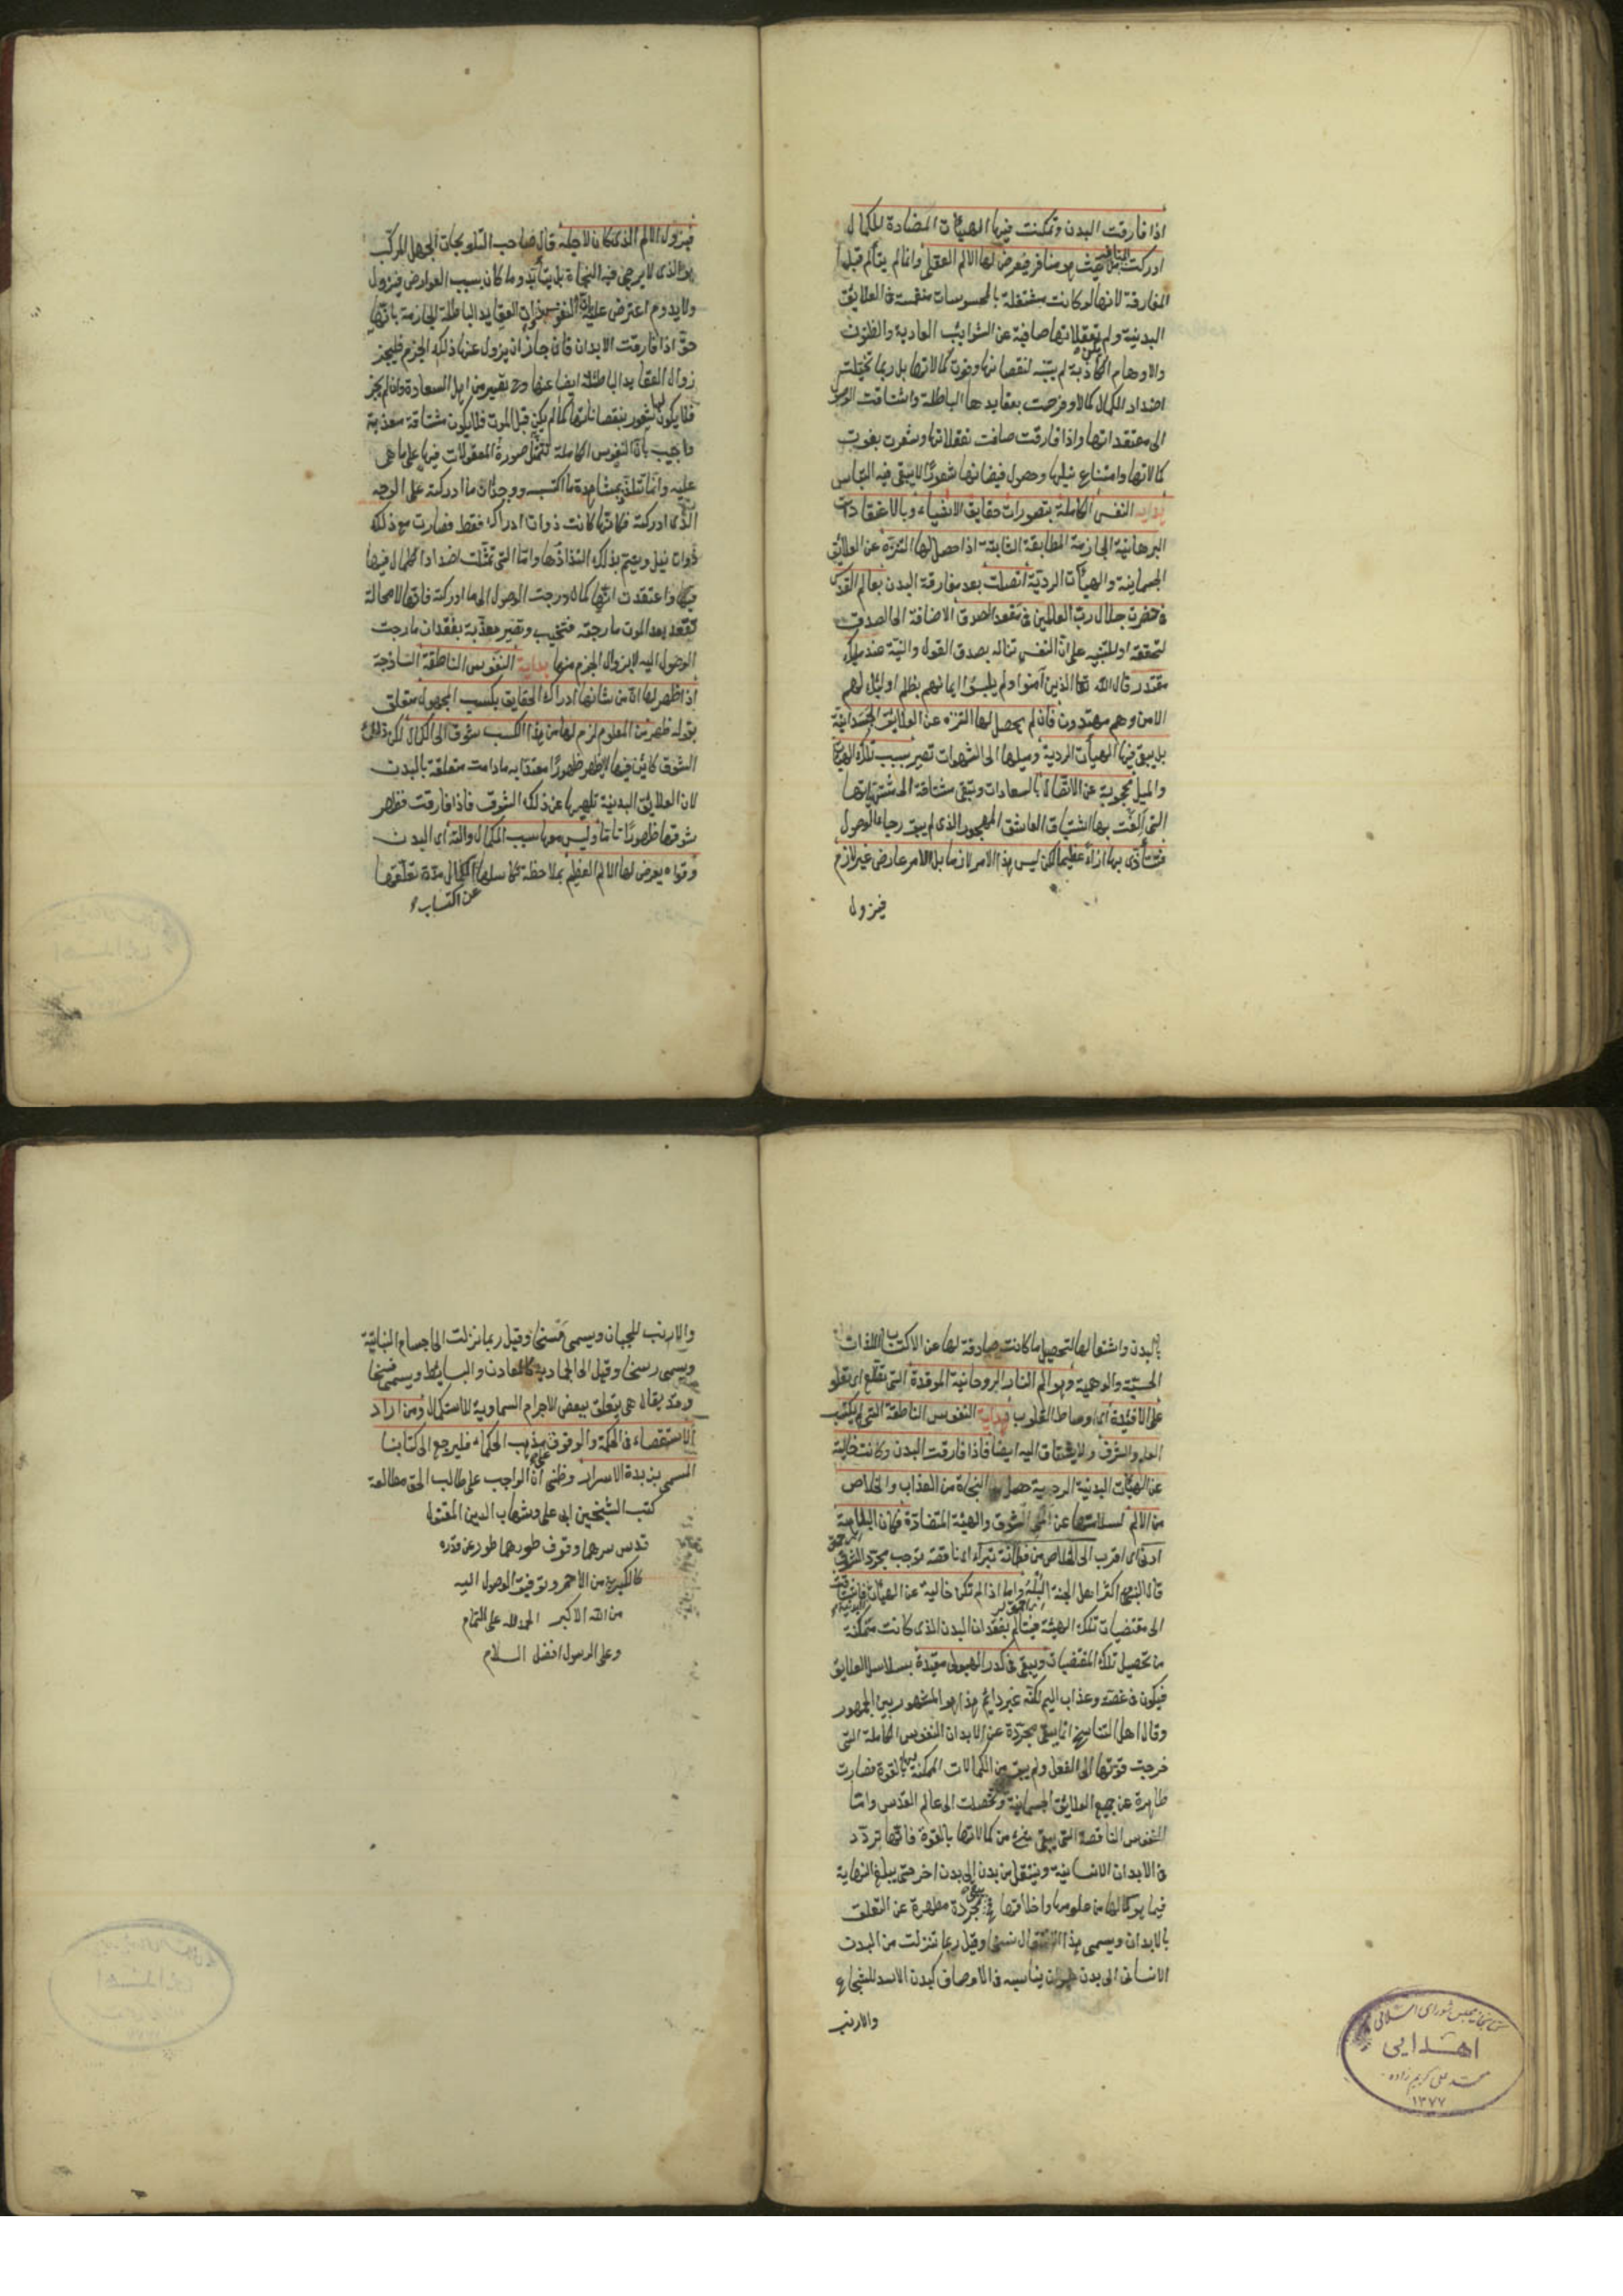 اذا فارقت البدن وتمكنت فيها الهيئات المضادة للكمال
ادركت من حيث هو مناف فيعرض لها الالم العقلى وانما لم يتألم قبل
المفارقة لانها لو كانت مشتغلة بالمحسوسات منغمسة فى العلايق
البدنية ولم تعقلاتها صافية عن الشوايب العادية والظنون
والاوهام الكاذبة لم يتنبه لنقصانها وفوت كمالاتها بل ربما تخيلت
اضداد الكمال كمالا وفرحت بعقايدها الباطلة واشتاقت الوصول
الى معتقداتها واذا فارقت صافت تعقلاتها وشعرت بفوت
كمالاتها وامتناع نيلها وحصول فيضانها شعورا لا يبقى فيه التباس
هداية النفس الكاملة بتصورات حقايق الاشياء وبالاعتقادات
البرهانية الجازمة المطابقة الثابتة اذا حصل لها التنزه عن العلائق
الجسمانية والهيئات الردية اتصلت بعد مفارقة البدن بعالم القدس
فى حضرت جلال رب العالمين فى مقعد صدق الاضافة الى الصدق
لتحققه او للتنبيه على ان النفس تناله بصدق القول والنية عند مليك
مقتدر قال الله تعالى الذين آمنوا ولم يلبسوا ايمانهم بظلم اولئك لهم
الامن وهم مهتدون فان لم يحصل لها التنزه عن العلايق الجسدانية
بل يبقى فيها الهيئات الردية وميلها الى الشهوات تصير بسبب تلك الهيئات
والميل محجوبة عن الاتصال بالسعادات وتبقى مشتاقة الى مشتهياتها
التى الفت بها اشتياق العاشق المهجور الذى لم يبق رجاء الوصول
فتتأذى بها اذاء عظيما لكن ليس هذا الامر لازما بل الامر عارض غير لازم
فيزول
فيزول الالم الذى كان لاجله قال صاحب التلويحات الجهل المركب
هو الذى لا يرجى فيه النجاة بل يتأبد وما كان بسبب العوارض فيزول
ولا يدوم اعترض عليه بان النفوس ذوات العقايد الباطلة الجازمة بانها
حق اذا فارقت الابدان فان جاز ان يزول عنها ذلك الجزم فليجز
زوال العقايد الباطلة ايضا عنها وح تصير من اهل السعادة وان لم يجز
فلا يكون لها شعور بنقصاناتها كما لم يكن قبل الموت فلا يكون مشتاقة معذبة
واجيب بان النفوس الكاملة تتمثل صورة المعقولات فيها على ما هى
عليه وانما تلتذ بمشاهدة ما اكتسبه ووجدان ما ادركته على الوجه
الذى ادركته فكانها كانت ذوات ادراك فقط فصارت مع ذلك
ذوات نيل ويتم بذلك التذاذها واما التى تمثلت اضداد الكمال فيها
واعتقدت انها كمال ورجت الوصول الى ما ادركته فانها لا محالة
تفقد بعد الموت ما رجته فتخيب وتصير معذبة بفقدان ما رجت
الوصول اليه لا بزوال الجزم منها هداية النفوس الناطقة الساذجة
اذا ظهر لها ان من شانها ادراك الحقايق بكسب المجهول متعلق
بقوله ظهر من المعلوم لزم لها من هذا الكسب شوق الى الكمال لكن ذلك
الشوق كائن فيها لا يظهر ظهورا معتدا به مادامت متعلقة بالبدن
لان العلائق البدنية تلهيها عن ذلك الشوق فاذا فارقت فظهر
شوقها ظهورا تاما وليس معها سبب الكمال والة اى البدن
وقواه يعرض لها الالم العظيم بملاحظة تكاسلها الكمال مدة تعلقها
عن اكتساب
بالبدن واشتغالها لتحصيل ما كانت صادفة لها عن الاكتساب اللذات
الحسية والوهمية وهو الم النار الروحانية الموقدة التى تطلع اى تعلو
على الافئدة اى اوساط القلوب هداية النفوس الناطقة التى لم يكتسب
العلم والشرف والاشتياق اليه ايضا فاذا فارقت البدن وكانت خالية
عن الهيئات البدنية الردية حصل لها النجاة من العذاب والخلاص
من الالم لسلامتها عن الم الشوق والهيئة المتضادة فكان البلاهة
ادنى اى اقرب الى الخلاص من فطانة بتراء اى ناقصة توجب مجرد الشوق
قال النبى اكثر اهل الجنة البله واما اذا لم تكن خالية عن الهيئات
الى مقتضيات تلك الهيئة فيتألم بفقدان البدن الذى كانت متمكنة
من تحصيل تلك المقتضيات ويبقى فى كدر الهيولى مقيدة بسلاسل العلايق
فيكون فى غصة وعذاب اليم لكنه غير دائم هذا هو المشهور بين الجمهور
وقال اهل التناسخ انما يبقى مجردة عن الابدان النفوس الكاملة التى
خرجت قوتها الى الفعل ولم يبق من الكمالات الممكنة لها بالقوة فصارت
طاهرة عن جميع العلائق الجسمانية وتخلصت الى عالم القدس واما
النفوس الناقصة التى يبقى شىء من كمالاتها بالقوة فانها تردد
فى الابدان الانسانية وينتقل من بدن الى بدن اخر حتى يبلغ النهاية
فيما هو كمالها من علومها واخلاقها يبقى مجردة مطهرة عن التعلق
بالابدان ويسمى هذا الانتقال نسخا وقيل ربما تنزلت من البدن
الانسانى الى بدن حيوان يناسبه فى الاوصاف كبدن الاسد للشجاع
والارنب
كتابخانه مجلس شورای اسلامی
اهدایی
محمد علی کریم زاده
۱۳۷۷
والارنب للجبان ويسمى مسخا وقيل ربما نزلت الى اجسام النباتية
ويسمى رسخا وقيل الى الجمادية كالمعادن والبسايط ويسمى فسخا
وقد يقال هى يتعلق ببعض الاجرام السماوية للاستكمال ومن اراد
الاستقصاء فى الحكمة والوقوف على مذهب الحكماء فليرجع الى كتابنا
المسمى بزبدة الاسرار وظنى ان الواجب على طالب الحق مطالعة
كتب الشيخين ابى على وشهاب الدين المقتول
قدس سرهما وقوف طورهما طور عن قدره
كالكبريت من الاحمر وتوفيق الوصول اليه
من الله الاكبر الحمد لله على التمام
وعلى الرسول افضل السلام